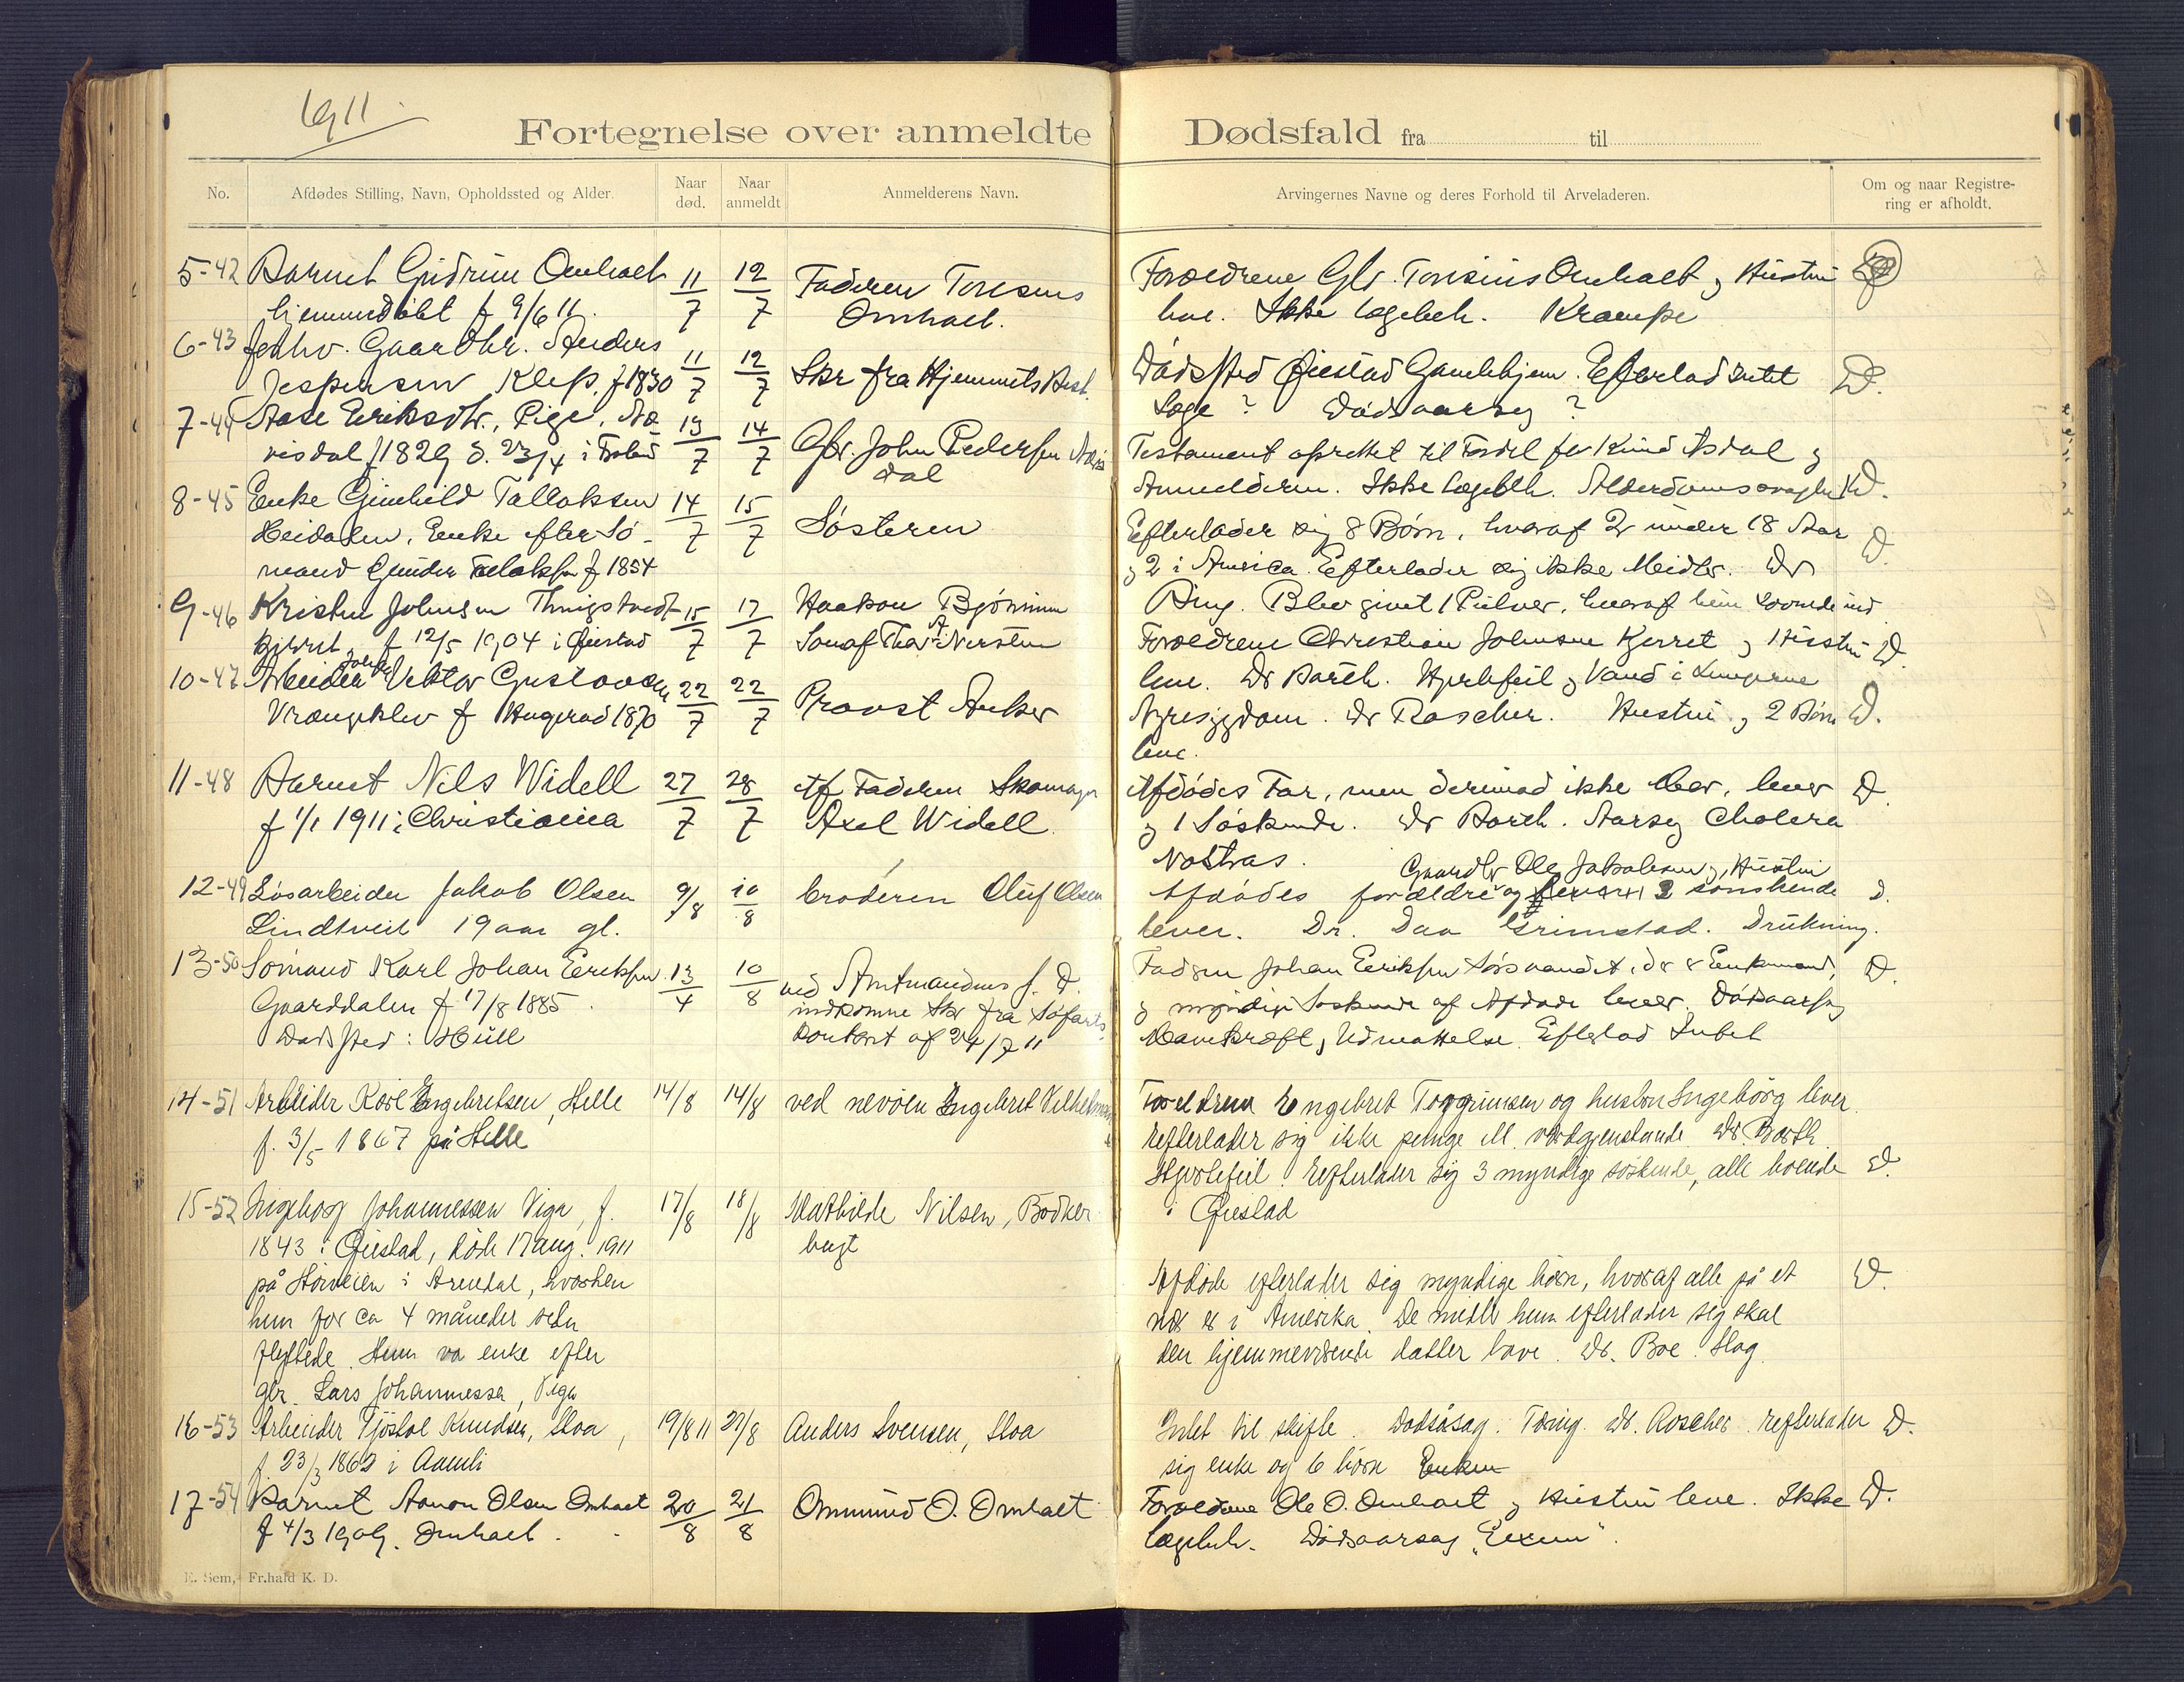 1911
Fortegnelse over anmeldte Dødsfald fra til
No.
Afdødes Stilling, Navn, Opholdssted og Alder.
Naar død.
Naar anmeldt
Anmelderens Navn.
Arvingernes Navne og deres Forhold til Arveladeren.
Om og naar Registrering er afholdt.
5-42 Barnet Gudrun Omholt 11/7 12/7 Faderen Tonsins Forældrene Gbr. Tonsins Omholt og Hustru
hjemmedøbt f 9/6 11. Omholt. leve. Ikke lægebeh. Krampe
6-43 Gaardbr. Anders
Jespersen Klep, f 1830 11/7 12/7 Skr fra Hjemmets Best. Dødssted Øiestad Gamlehjem. Efterlod Intet D.
Læge? Dødsaarsag?
7-44 Aase Eriksdtr., Pige, Næ 13/7 14/7 Gbr. John Pedersen Nævis
visdal f 1829 d. 23/4 i Froland dal Testament oprettet til Fordel for Knud Asdal og
Anmelderen. Ikke lægebeh. Alderdomssvaghed D.
8-45 Enke Gunhild Tallaksen 14/7 15/7 Søsteren Efterlader sig 8 Børn, hvoraf 2 under 18 Aar D.
Heidalen, Enke efter Sø-
mand Gunder Tallaksen f 1854 og 2 i America. Efterlader sig ikke Midler. Dr
9-46 Kristen Johnsen 15/7 17/7 Haakon Bjørnum Ring. Blev givet 1 Pulver, hvoraf hun sovnede ind
Kjerret, f 12/5 1904 i Øiestad Forældrene Christian Johnsen Kjerret og Hustru D.
leve. Dr Barth. Hjertefeil og Vand i Lungerne
10-47 Arbeider Viktor Gustavsen 22/7 22/7 Provst Anker Nyresygdom. Dr Roscher. Hustru og 2 Børn D.
Vrængeklev f Ungerød 1870 leve.
11-48 Barnet Nils Widell 27/7 28/7 Af Faderen Skomager Afdødes Far, men derimod ikke Mor, lever D.
f 1/1 1911 i Christiania Axel Widell og 1 Søskende. Dr Barth. Aarsag Cholera
Nostras.
Gaardbr Ole Jakobsen og Hustru
12-49 Løsarbeider Jakob Olsen 9/8 10/8 broderen Oluf Olsen Afdødes forældre og 3 søskende D.
Lindtveit 19 aar gl. lever. Dr. Daa Grimstad. Drukning.
13-50 Sømand Karl Johan Eriksen 13/4 10/8 ved Amtmandens f. D. Faderen Johan Eriksen der er Enkemand, D.
Gaarddalen f 17/8 1885. indkomne Skr fra Søfarts og myndige Søskende af Afdøde lever. Dødsaarsag
Dødssted: Hull kontoret af 24/7 11 Mavekræft, Udmattelse. Efterlod Intet
14-51 Arbeider Karl Engebretsen, Helle 14/8 14/8 ved nevøen Engebret Forældrene Engebret Torgrimsen og hustru Ingeborg lever.
f. 3/5 1867 på Helle efterlader sig ikke penge ell. værdigjenstande Dr. Barth
Hjertefeil. Efterlader sig 3 myndige søskende, alle boende D.
i Øiestad
15-52 Ingeborg Johannessen Viga, f. 17/8 18/8 Mathilde Nilsen, Bødker
1843 i Øiestad, døde 17 aug. 1911 bugt
på Heiveien i Arendal, hvorhen Afdøde efterlader sig myndige børn, hvoraf alle på et D.
hun for ca 4 måneder siden nær er i Amerika. De midler hun efterlader sig skal
flyttede. Hun va enke efter den hjemmeværende datter have. Dr. Boe. Slag
gbr. Lars Johannessen, Viga
16-53 Arbeider Tjøstol Knudsen, Stoa, 19/8 11 21/8 Anders Svensen, Stoa Intet til skifte. Dødsårsag: Tæring. Dr. Roscher. efterlader D.
f. 23/3 1862 i Aamli sig enke og 6 børn Enken
17-54 Barnet Aanon Olsen Omholt 20/8 21/8 Ommund O. Omholt Forældrene Ole O. Omholt og Hustru leve. Ikke D.
f 4/3 1909. Omholt. lægebeh. Dødsaarsag "Exem".
E. Sem, Fr.hald K. D.